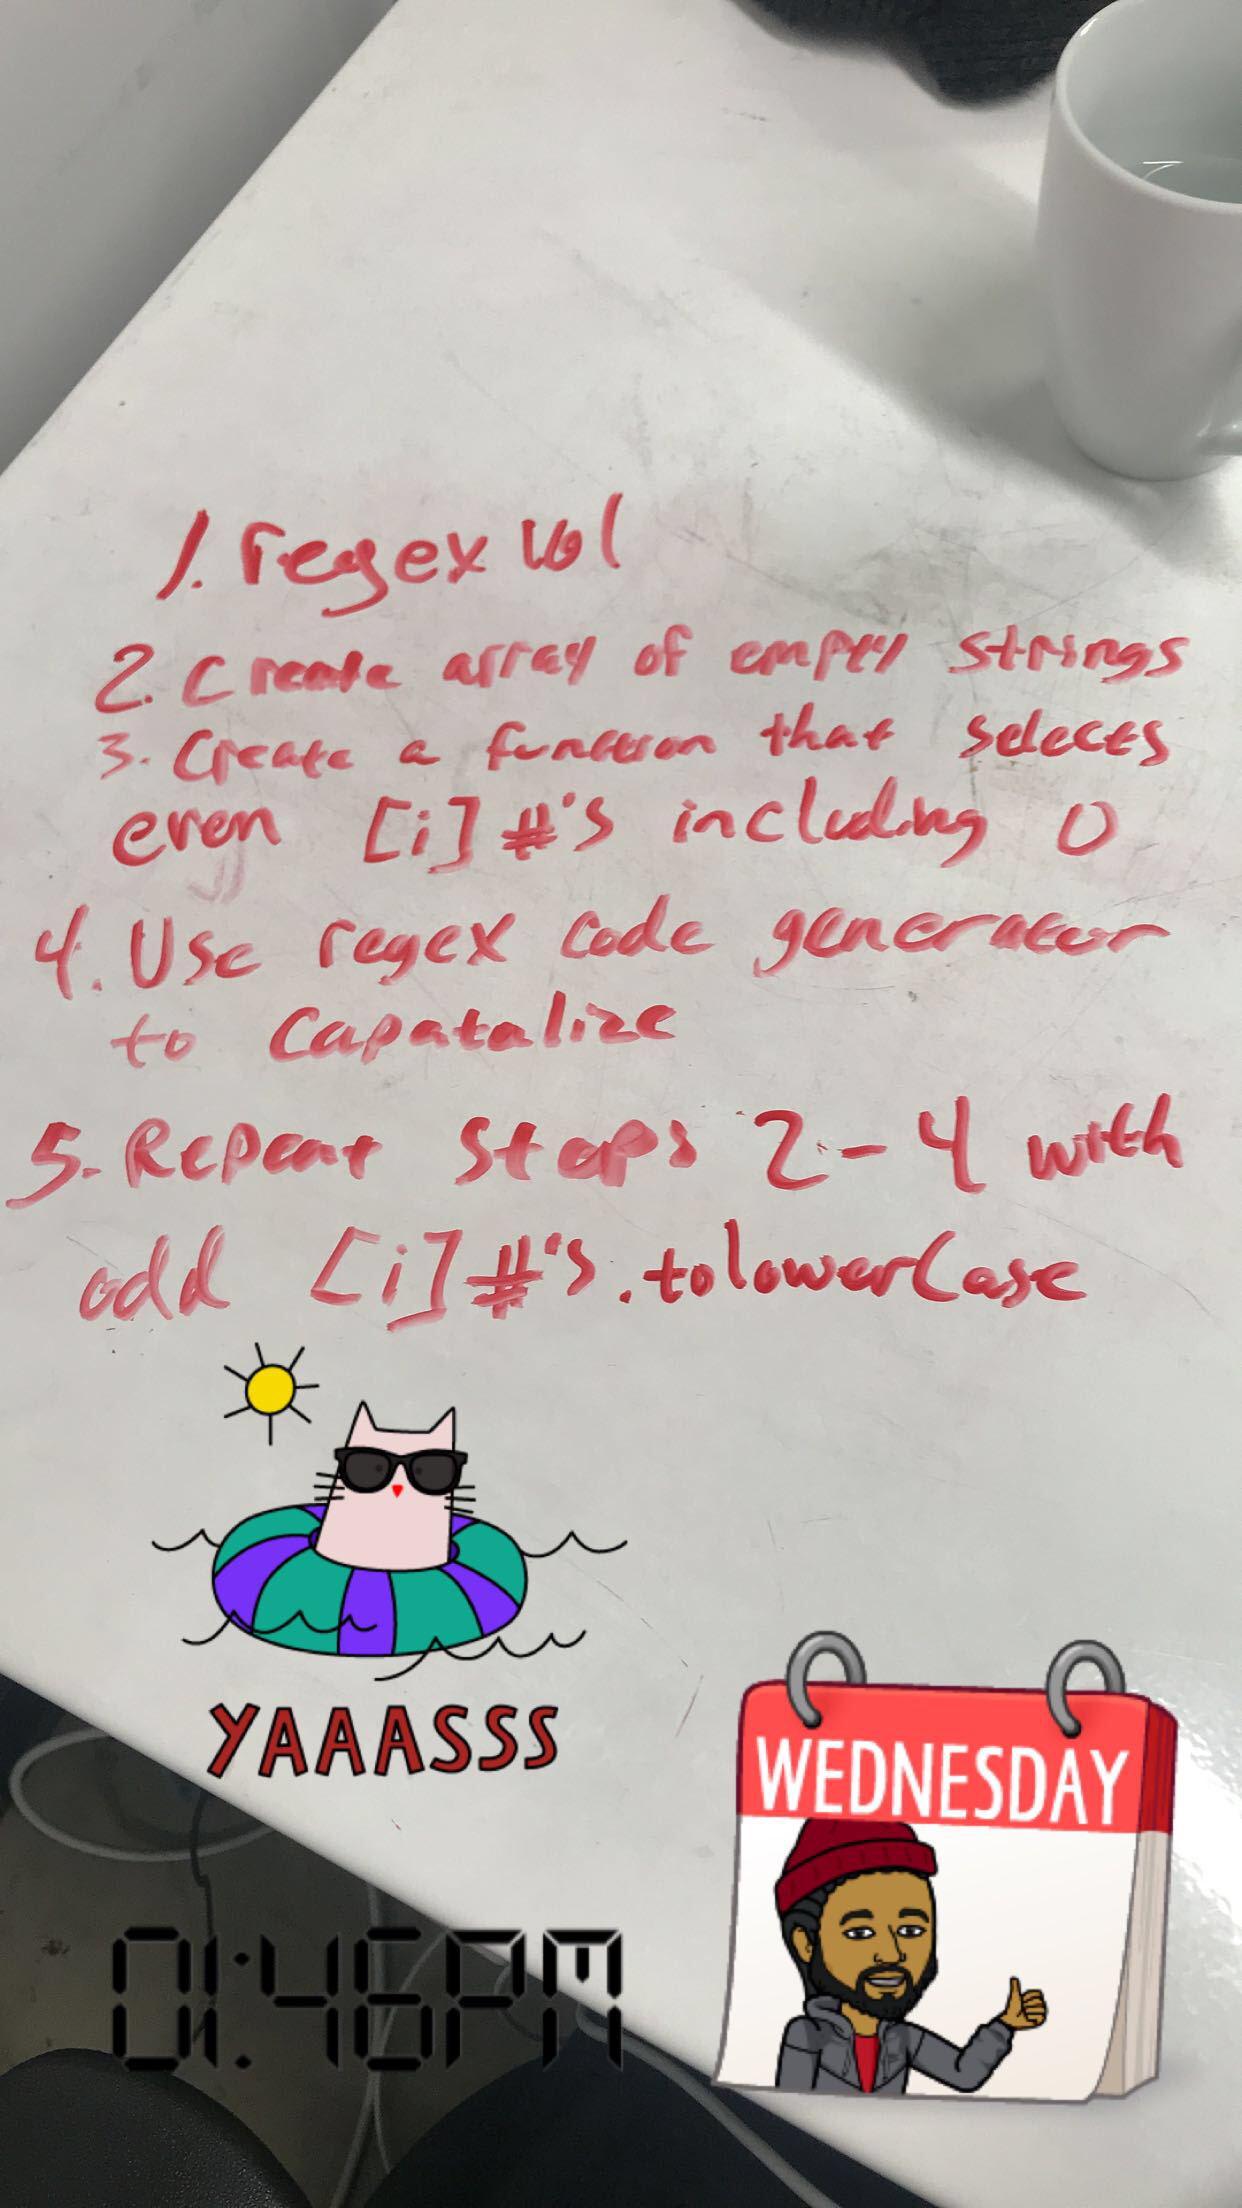 1. regex lol
2. Create array of empty strings
3. Create a function that selects
even [i] #'s including 0
4. Use regex code generator
to Capatalize
5. Repeat Steps 2-4 with
odd [i] #'s .tolowerCase
YAAASSS
WEDNESDAY
01:46PM